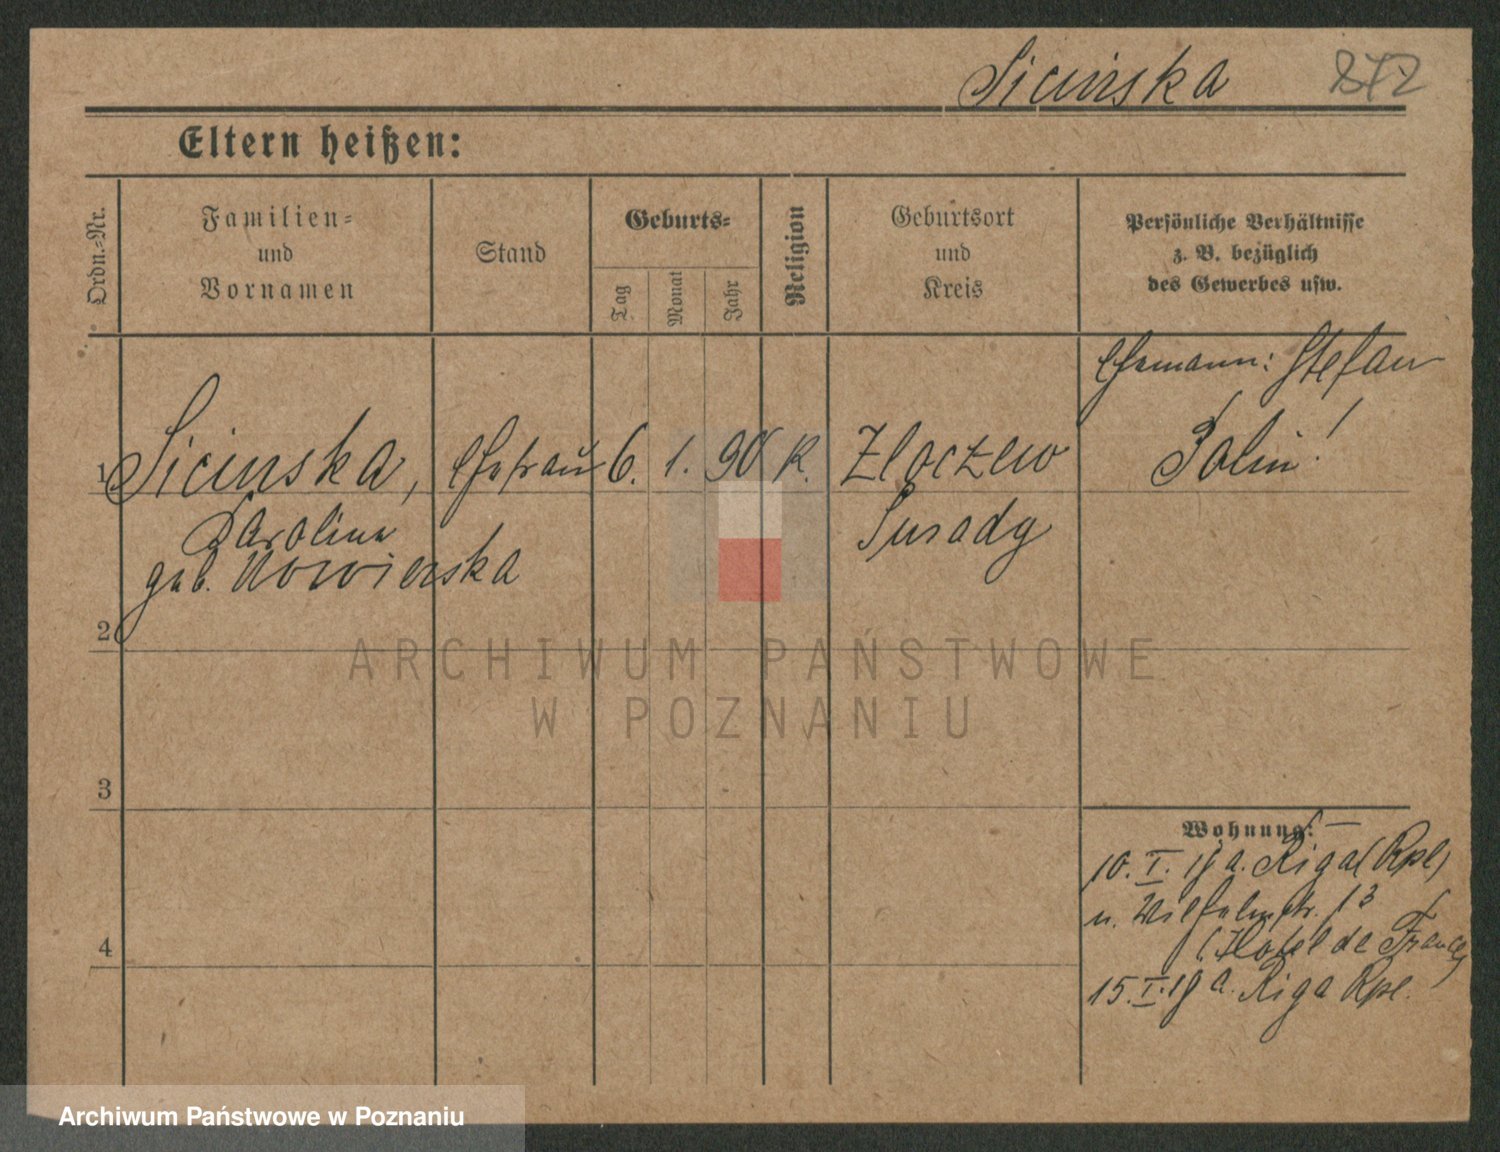 Sicinska 872
Eltern heißen:
Ordn.-Nr.
Familien-
und
Vornamen
Stand
Geburts-
Tag
Monat
Jahr
Religion
Geburtsort
und
Kreis
Persönliche Verhältnisse
z. B. bezüglich
des Gewerbes usw.
Ehemann: Stefan
1 Sicinska, Ehefrau 6. 1. 90 K. Zloczew
Karoline
geb. Nowierska
2
3
4
Wohnung:
10. I. 18 a. Riga (Rpl)
n. Wilhelmstr. 13
(Hotel de France)
15. I. 18 a. Riga Rpl.
ARCHIWUM PAŃSTWOWE
W POZNANIU
Archiwum Państwowe w Poznaniu